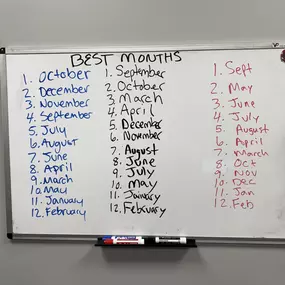 BEST MONTHS
1. October
2. December
3. November
4. September
5. July
6. August
7. June
8. April
9. March
10. May
11. January
12. February
1. September
2. October
3. March
4. April
5. December
6. November
7. August
8. June
9. July
10. May
11. January
12. February
1. Sept
2. May
3. June
4. July
5. August
6. April
7. March
8. Oct
9. Nov
10. Dec
11. Jan
12. Feb